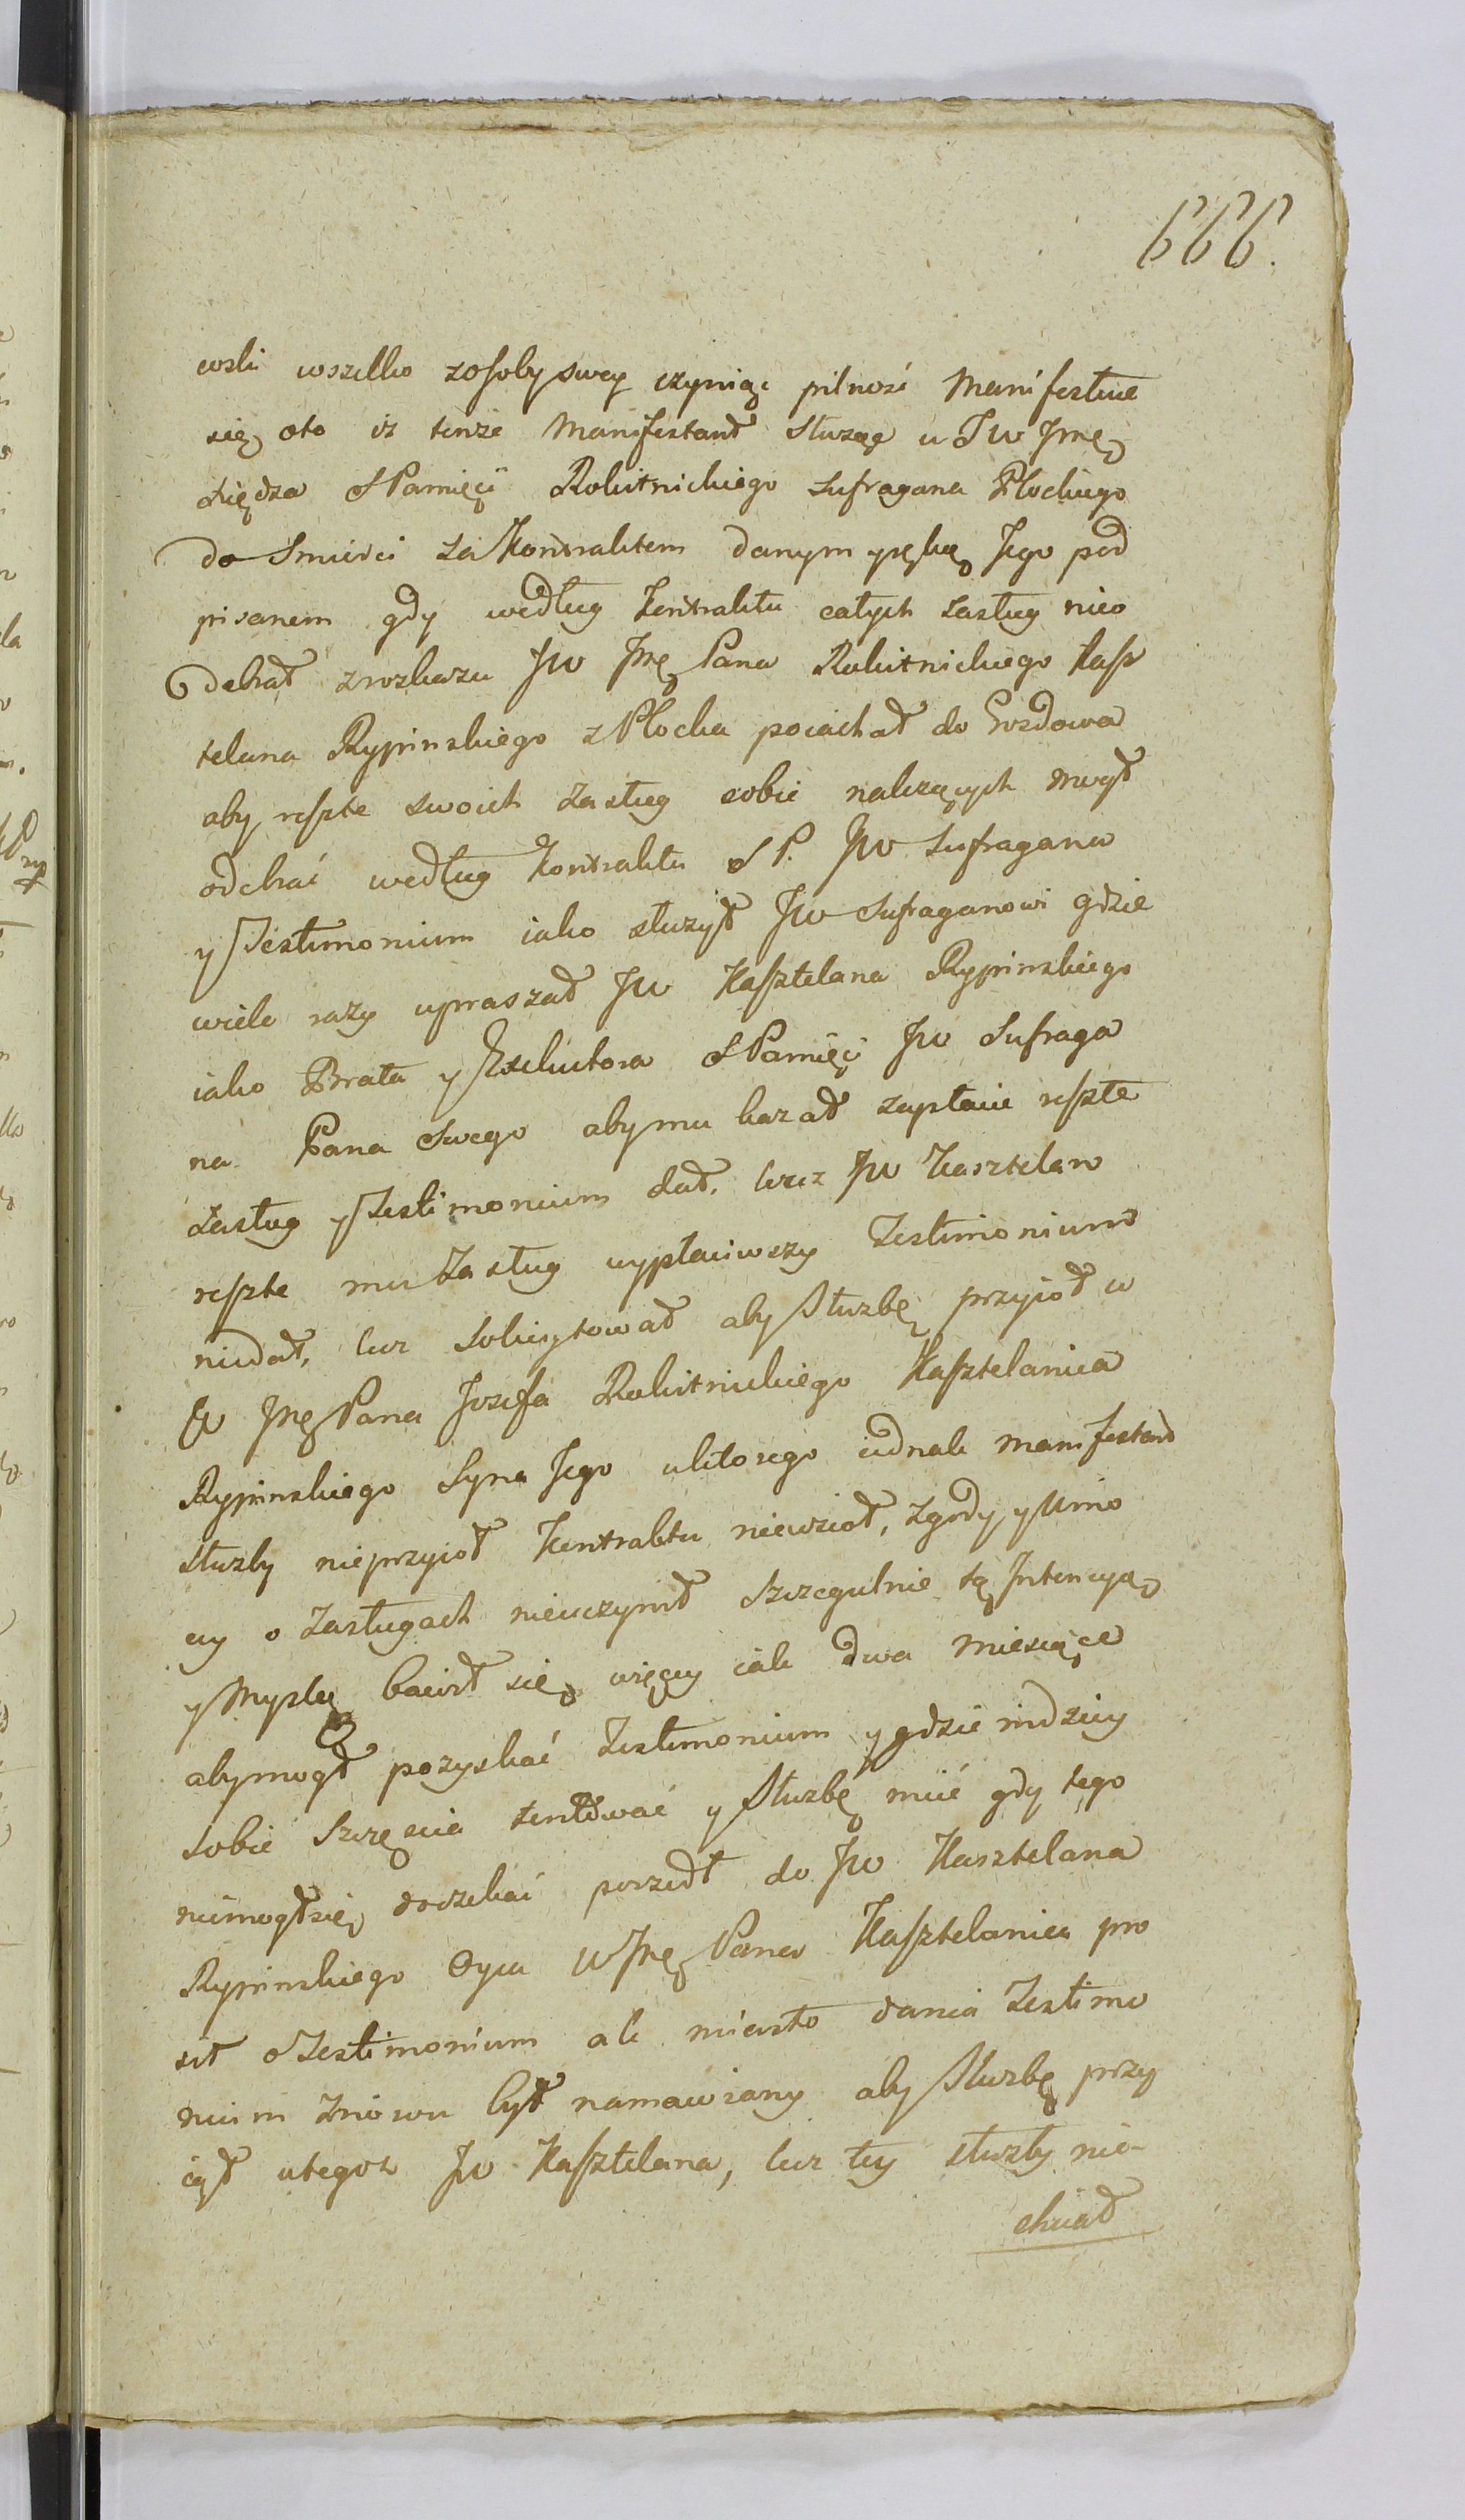 666.
wski wszelko zosoby swey czyniąc pilność Manifestuie
się oto iż tenże Manifestant służąc u JW Jmę
Xiędza S Pamięci Rokitnickiego Sufragana Płockiego
do Smierci za Kontraktem danym y ręką Jego pod
pisanem gdy według Kontraktu całych zasług nieo
debrał z rozkazu JW Jmę Pana Rokitnickiego Kasz
telana Rypinskiego z Płocka poiachał do Gozdowa
aby reszte swoich zasług sobie należących mógł
odebrać według Kontraktu S P. JW Sufragana
y Testimonium iako służył JW Sufraganowi gdzie
wiele razy upraszał JW Kasztelana Rypinskiego
iako Brata y Exekutora S Pamięci JW Sufraga
na Pana Swego aby mu kazał zapłacić reszte
Zasług y Testimonium dał. lecz JW Kasztelan
reszte mu Zasług wypłaciwszy Testimonium
niedał, lecz Solicytował aby Służbę przyioł u
W Jmę Pana Jozefa Rokitnickiego Kasztelanica
Rypinskiego Syna Jego uktorego iednak Manifestant
służby nieprzyioł Kontraktu niewzioł, zgody y Umo
wy o Zasługach nieuczynił Szczegulnie tą Intencyą
y Myslą bawił się więcy iak dwa Miesiące
abymogł pozyskać Testimonium y gdzie indziey
sobie Szczęscia tentować y Służbę mieć gdy tego
niemogł się doczekać poszedł do JW Kasztelana
Rypinskiego Oyca W Jmę Pana Kasztelanica pro
sił o Testimonium ale miasto dania Testimo
nium znowu był namawiany aby Służbę przy
ioł utegoż JW Kasztelana, lecz tey służby nie-
chciał